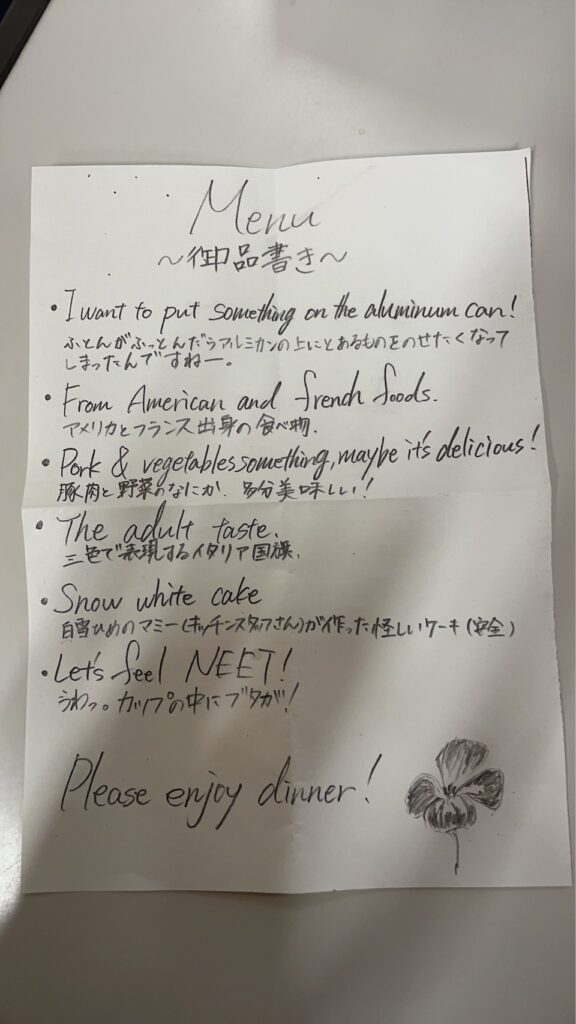 Menu
～御品書き～
・I want to put something on the aluminum can!
ふとんがふっとんだらアルミカンの上にとあるものをのせたくなって
しまったんですねー。
・From American and french foods.
アメリカとフランス出身の食べ物.
・Pork & vegetables something, maybe it's delicious!
豚肉と野菜のなにか. 多分美味しい!
・The adult taste.
三色で表現するイタリア国旗.
・Snow white cake
白雪ひめのマミー(キッチンスタッフさん)が作った怪しいケーキ(安全)
・Let's feel NEET!
うわっ。カップの中にブタが!
Please enjoy dinner!